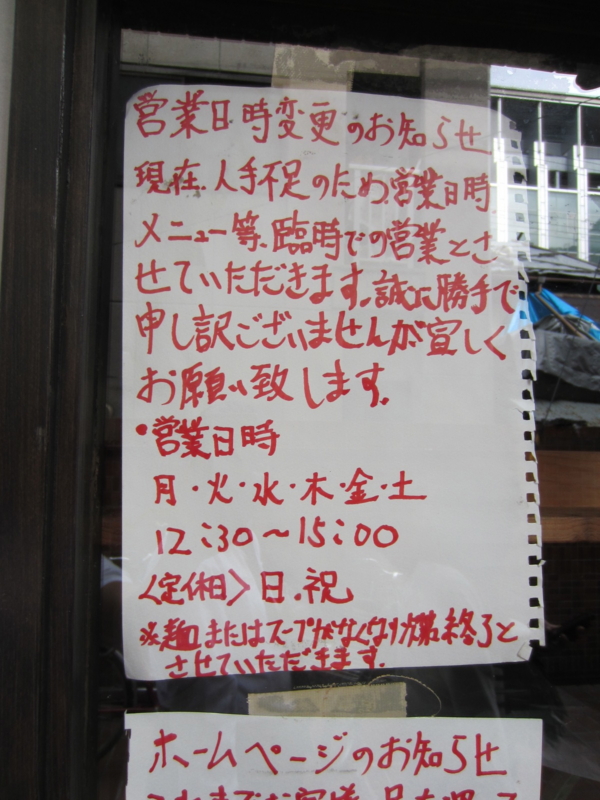 営業日時変更のお知らせ
現在、人手不足のため、営業日時
メニュー等、臨時での営業とさ
せていただきます。誠に勝手で
申し訳ございませんが宜しく
お願い致します。
・営業日時
月・火・水・木・金・土
12:30〜15:00
〈定休日〉日・祝
※麺またはスープがなくなり次第終了と
させていただきます。
ホームページのお知らせ